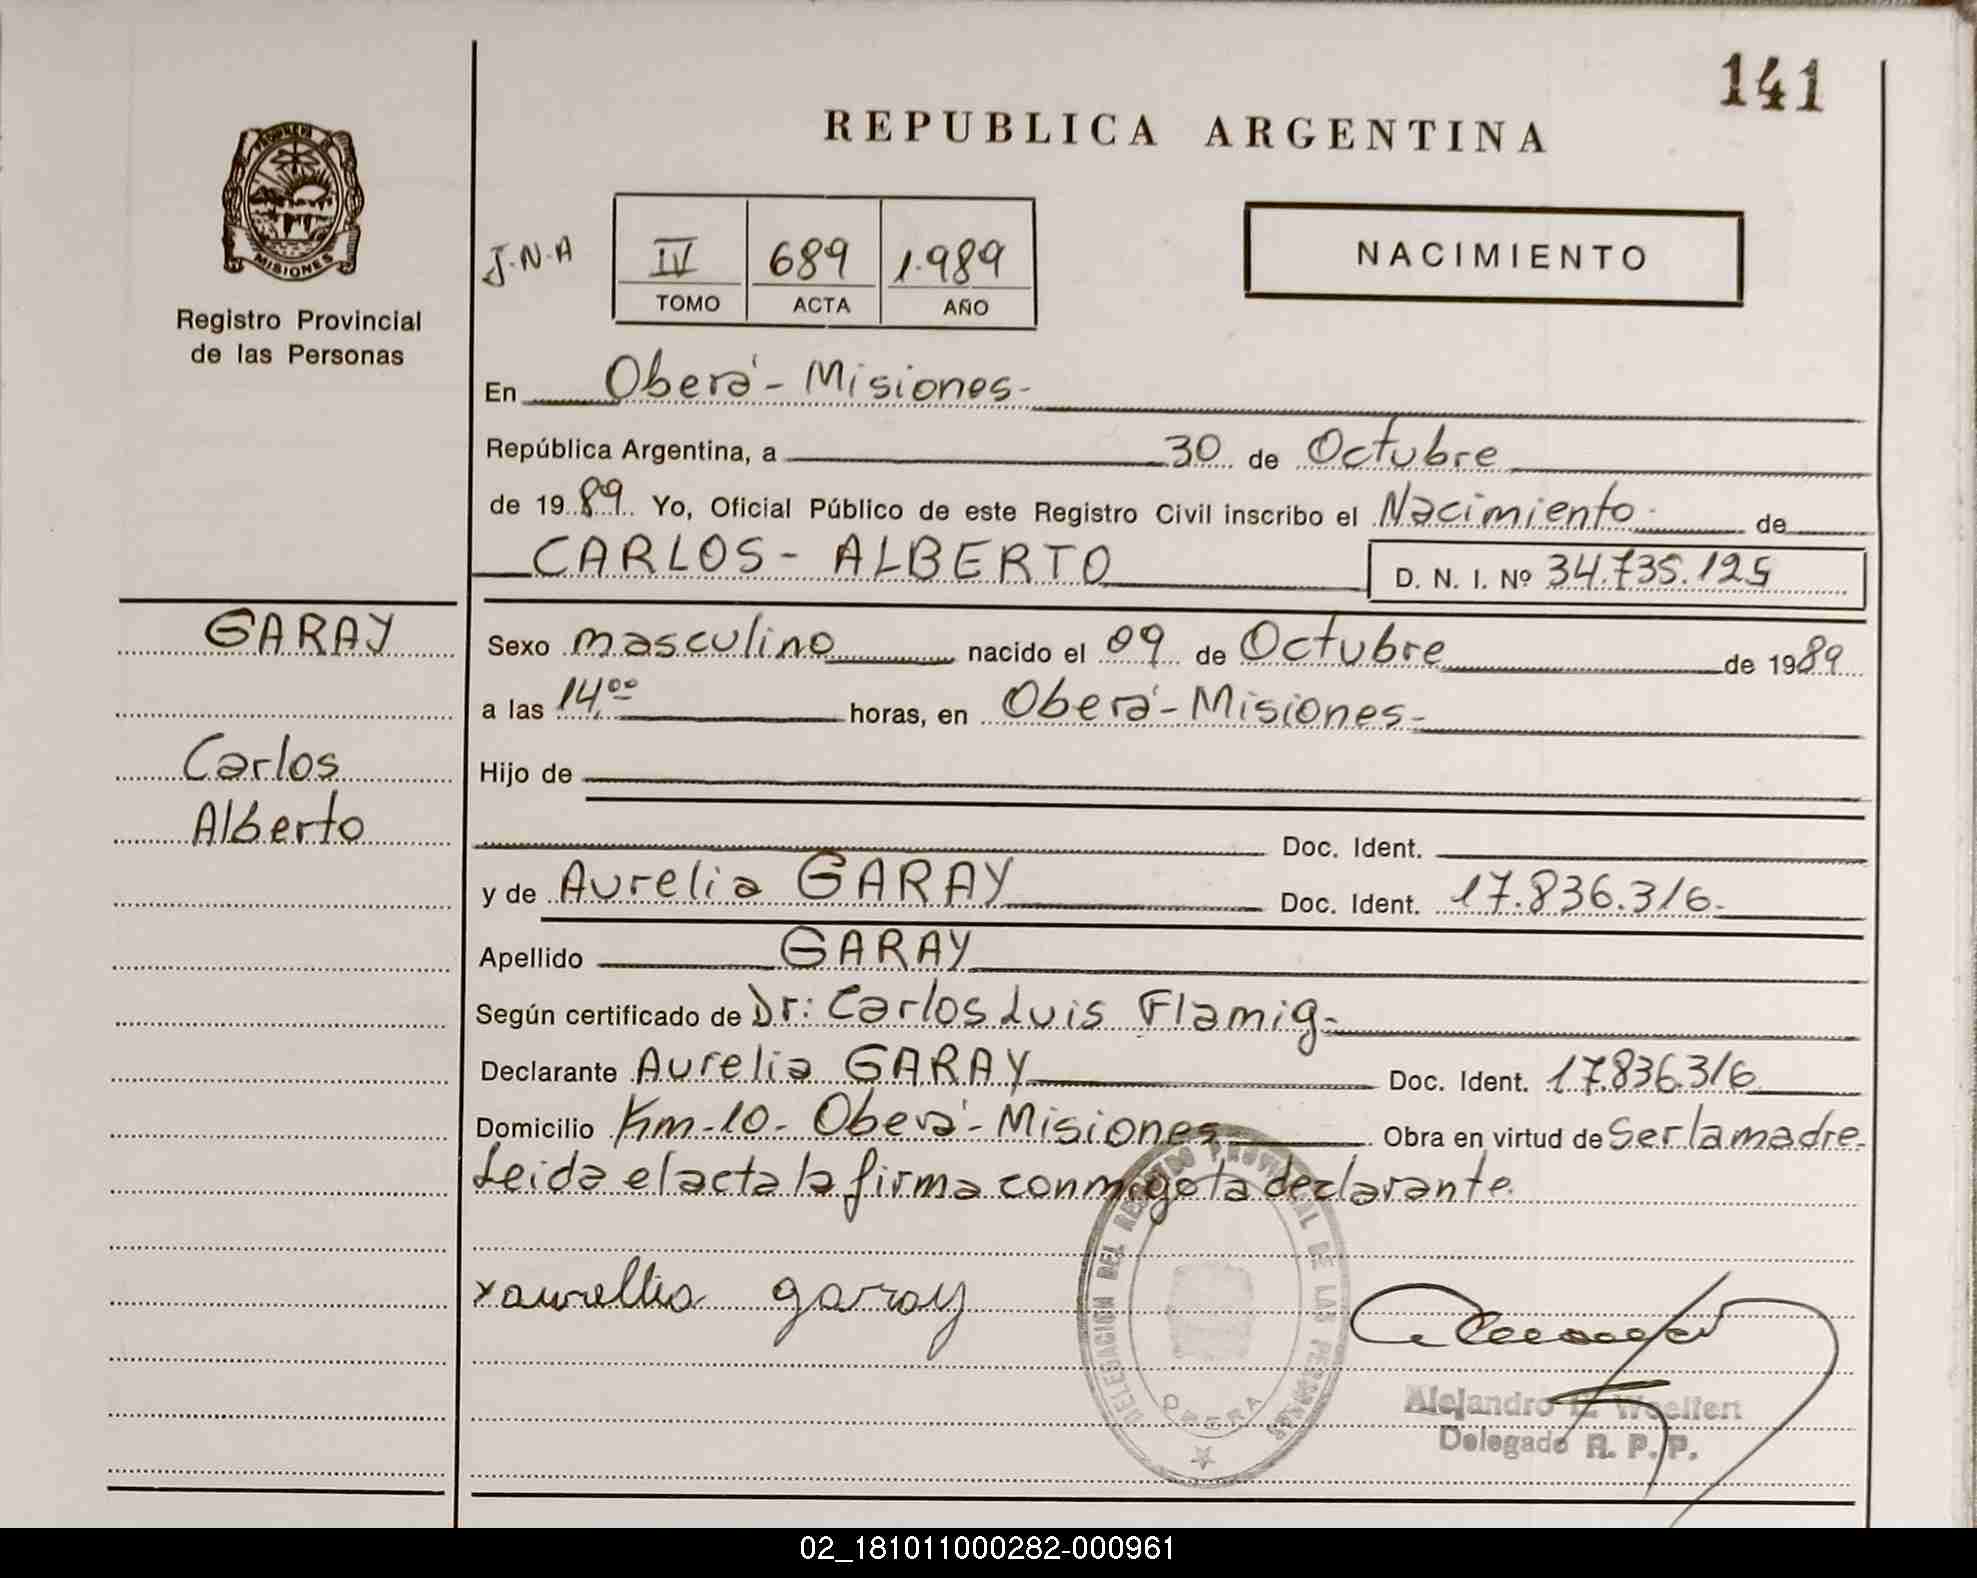 141
REPUBLICA ARGENTINA
PROVINCIA DE
MISIONES
Registro Provincial
de las Personas
J.N.A
IV 689 1.989
TOMO ACTA AÑO
NACIMIENTO
En Oberá - Misiones -
República Argentina, a 30 de Octubre
de 1989. Yo, Oficial Público de este Registro Civil inscribo el Nacimiento - de
CARLOS - ALBERTO D. N. I. Nº 34.735.125
GARAY
Carlos
Alberto
Sexo masculino nacido el 09 de Octubre de 1989
a las 14,00 horas, en Oberá - Misiones -
Hijo de
Doc. Ident.
y de Aurelia GARAY Doc. Ident. 17.836.316.-
Apellido GARAY
Según certificado de Dr: Carlos Luis Flamig -
Declarante Aurelia GARAY Doc. Ident. 17.836.316
Domicilio Km-10- Oberá - Misiones Obra en virtud de ser la madre.
Leida el acta la firma conmigo la declarante.
x aurellia garay
DELEGACION DEL REGISTRO PROVINCIAL DE LAS PERSONAS
OBERA
Alejandro Woelfert
Delegado R. P. P.
02_181011000282-000961